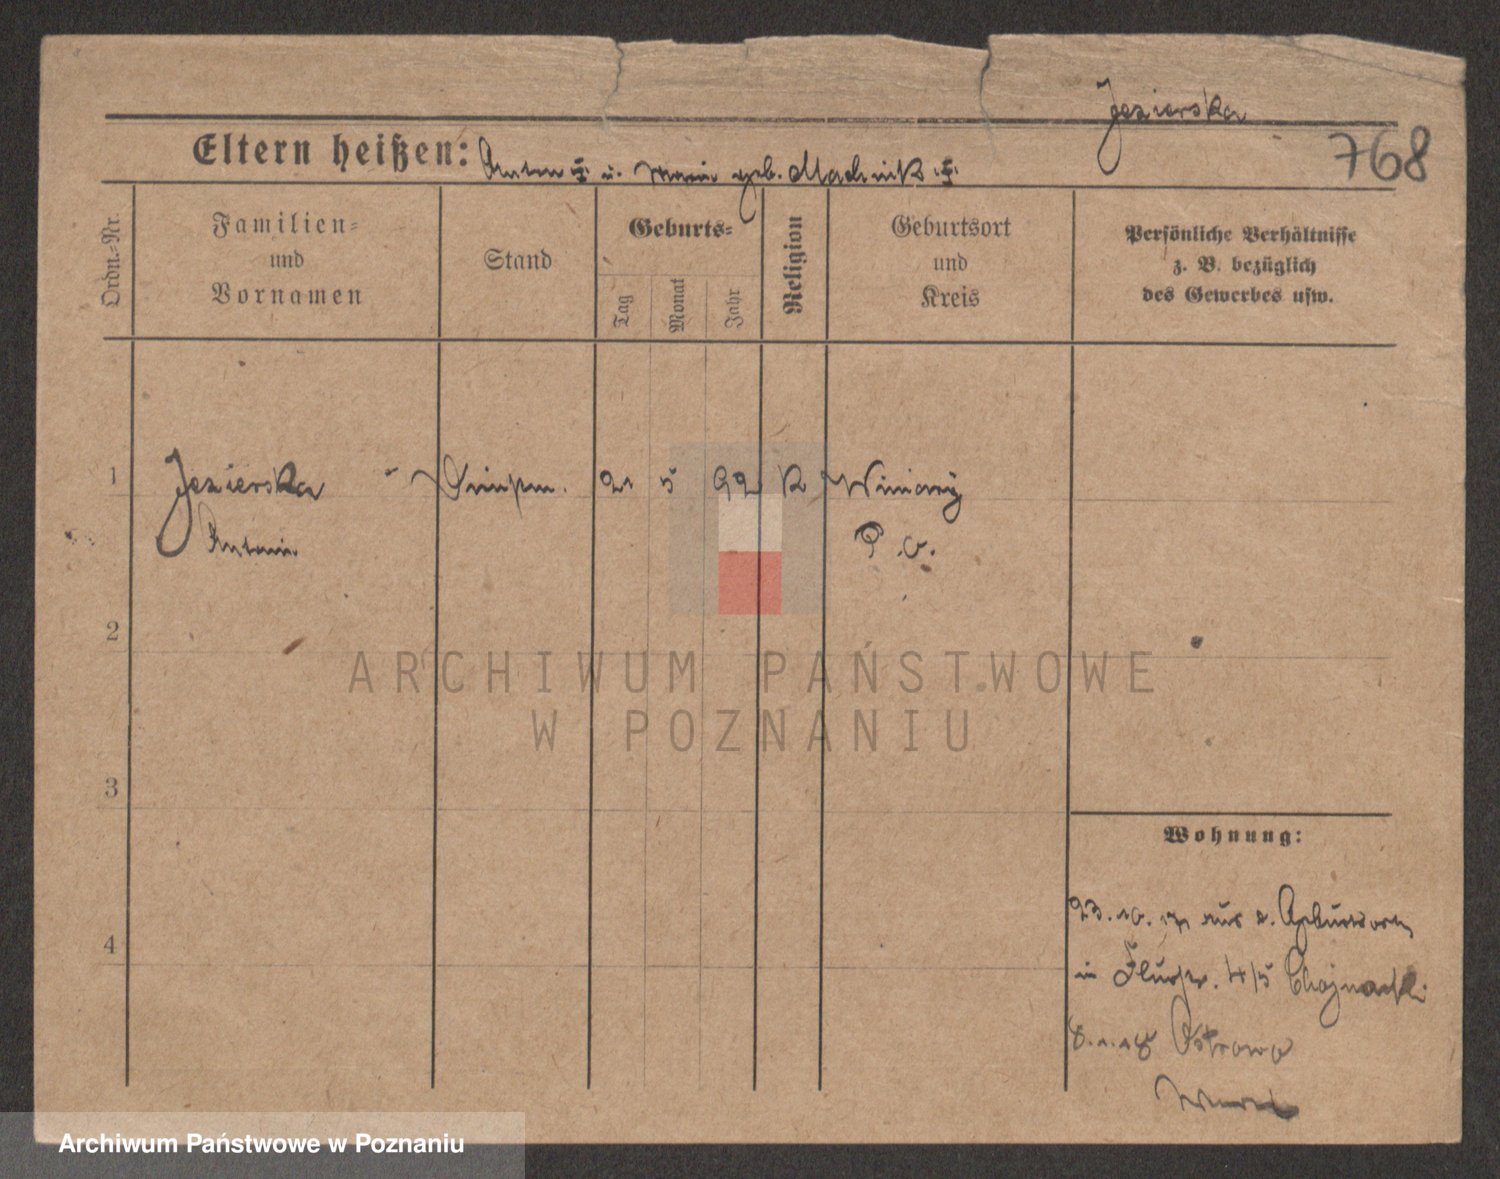 Jezierska
768
Eltern heißen: Anton u. Marie geb. Machnik
Ordn.=Nr.
Familien=
und
Vornamen
Stand
Geburts=
Tag
Monat
Jahr
Religion
Geburtsort
und
Kreis
Persönliche Verhältnisse
z. B. bezüglich
des Gewerbes usw.
1 Jezierska 21 5 92 K Winiary
Antonie P. O.
2
ARCHIWUM PAŃSTWOWE
W POZNANIU
3
Wohnung:
23.10.17 aus d. Geburtsort
4
in 4/5 Chojnacki
8.1.18 Ostrowo
Archiwum Państwowe w Poznaniu